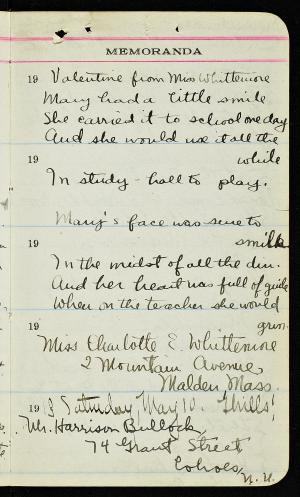 MEMORANDA
19 Valentine from Miss Whittemore
Mary had a little smile
She carried it to school one day
And she would use it all the
19 while
In study-hall to play.
Mary's face was sure to
19 smile
In the midst of all the din.
And her heart was full of guile
When on the teacher she would
19 grin.
Miss Charlotte E. Whittemore
2 Mountain Avenue
Malden Mass.
1913 Saturday May 10. Thrills!
Mr. Harrison Bullock,
74 Grant Street
Cohoes,
N.Y.